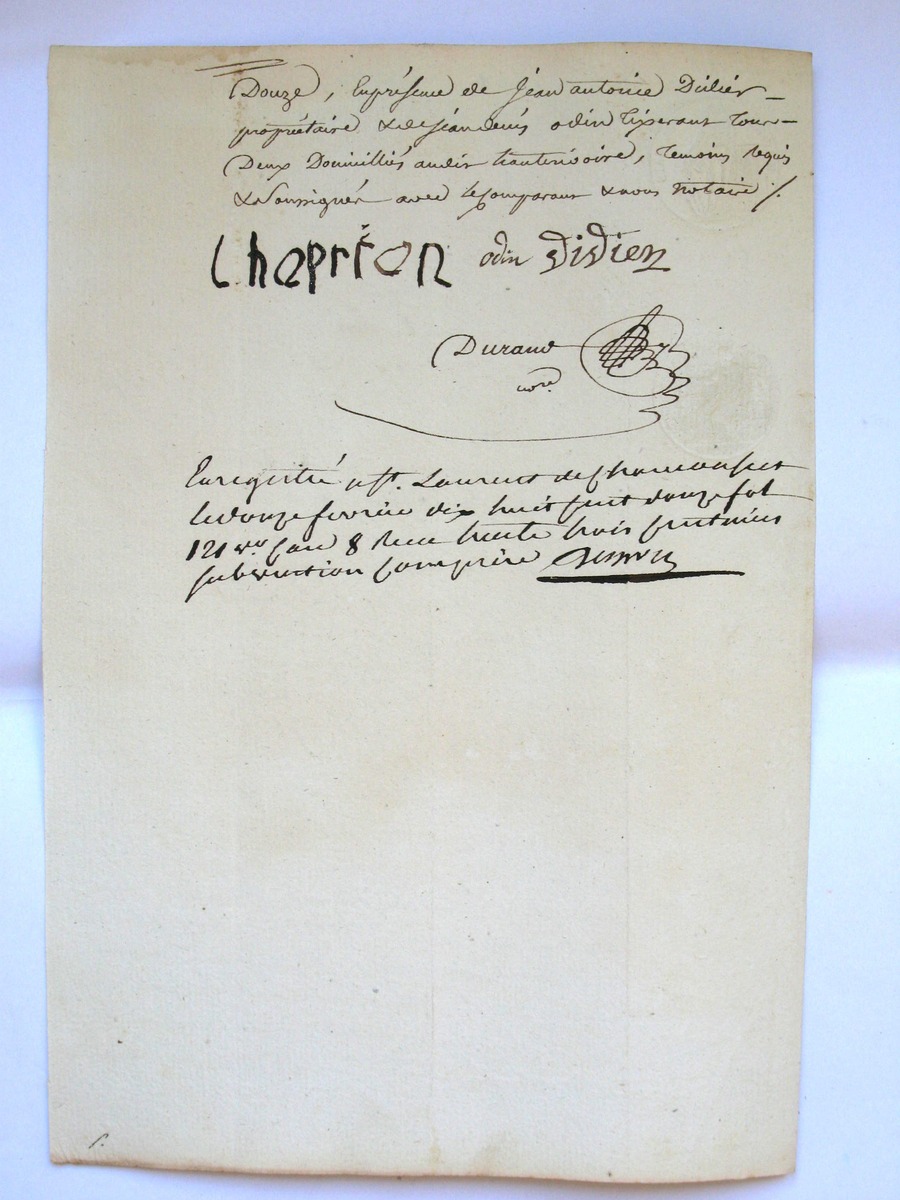 Douze, En présence de Jean antoine Didier
propriétaire & de Jean denis odin tixerant tous
Deux Domiciliés audit hauterivoire, temoins requis
& Soussignés avec le Comparant & nous Notaire /.
odin Didier
Durand
nore
Enregistré a St. Laurent de Chamousset
le douze fevrier dix huit cent douze fol
121 vo Case 8 Recu trente trois centimes
subvention comprise